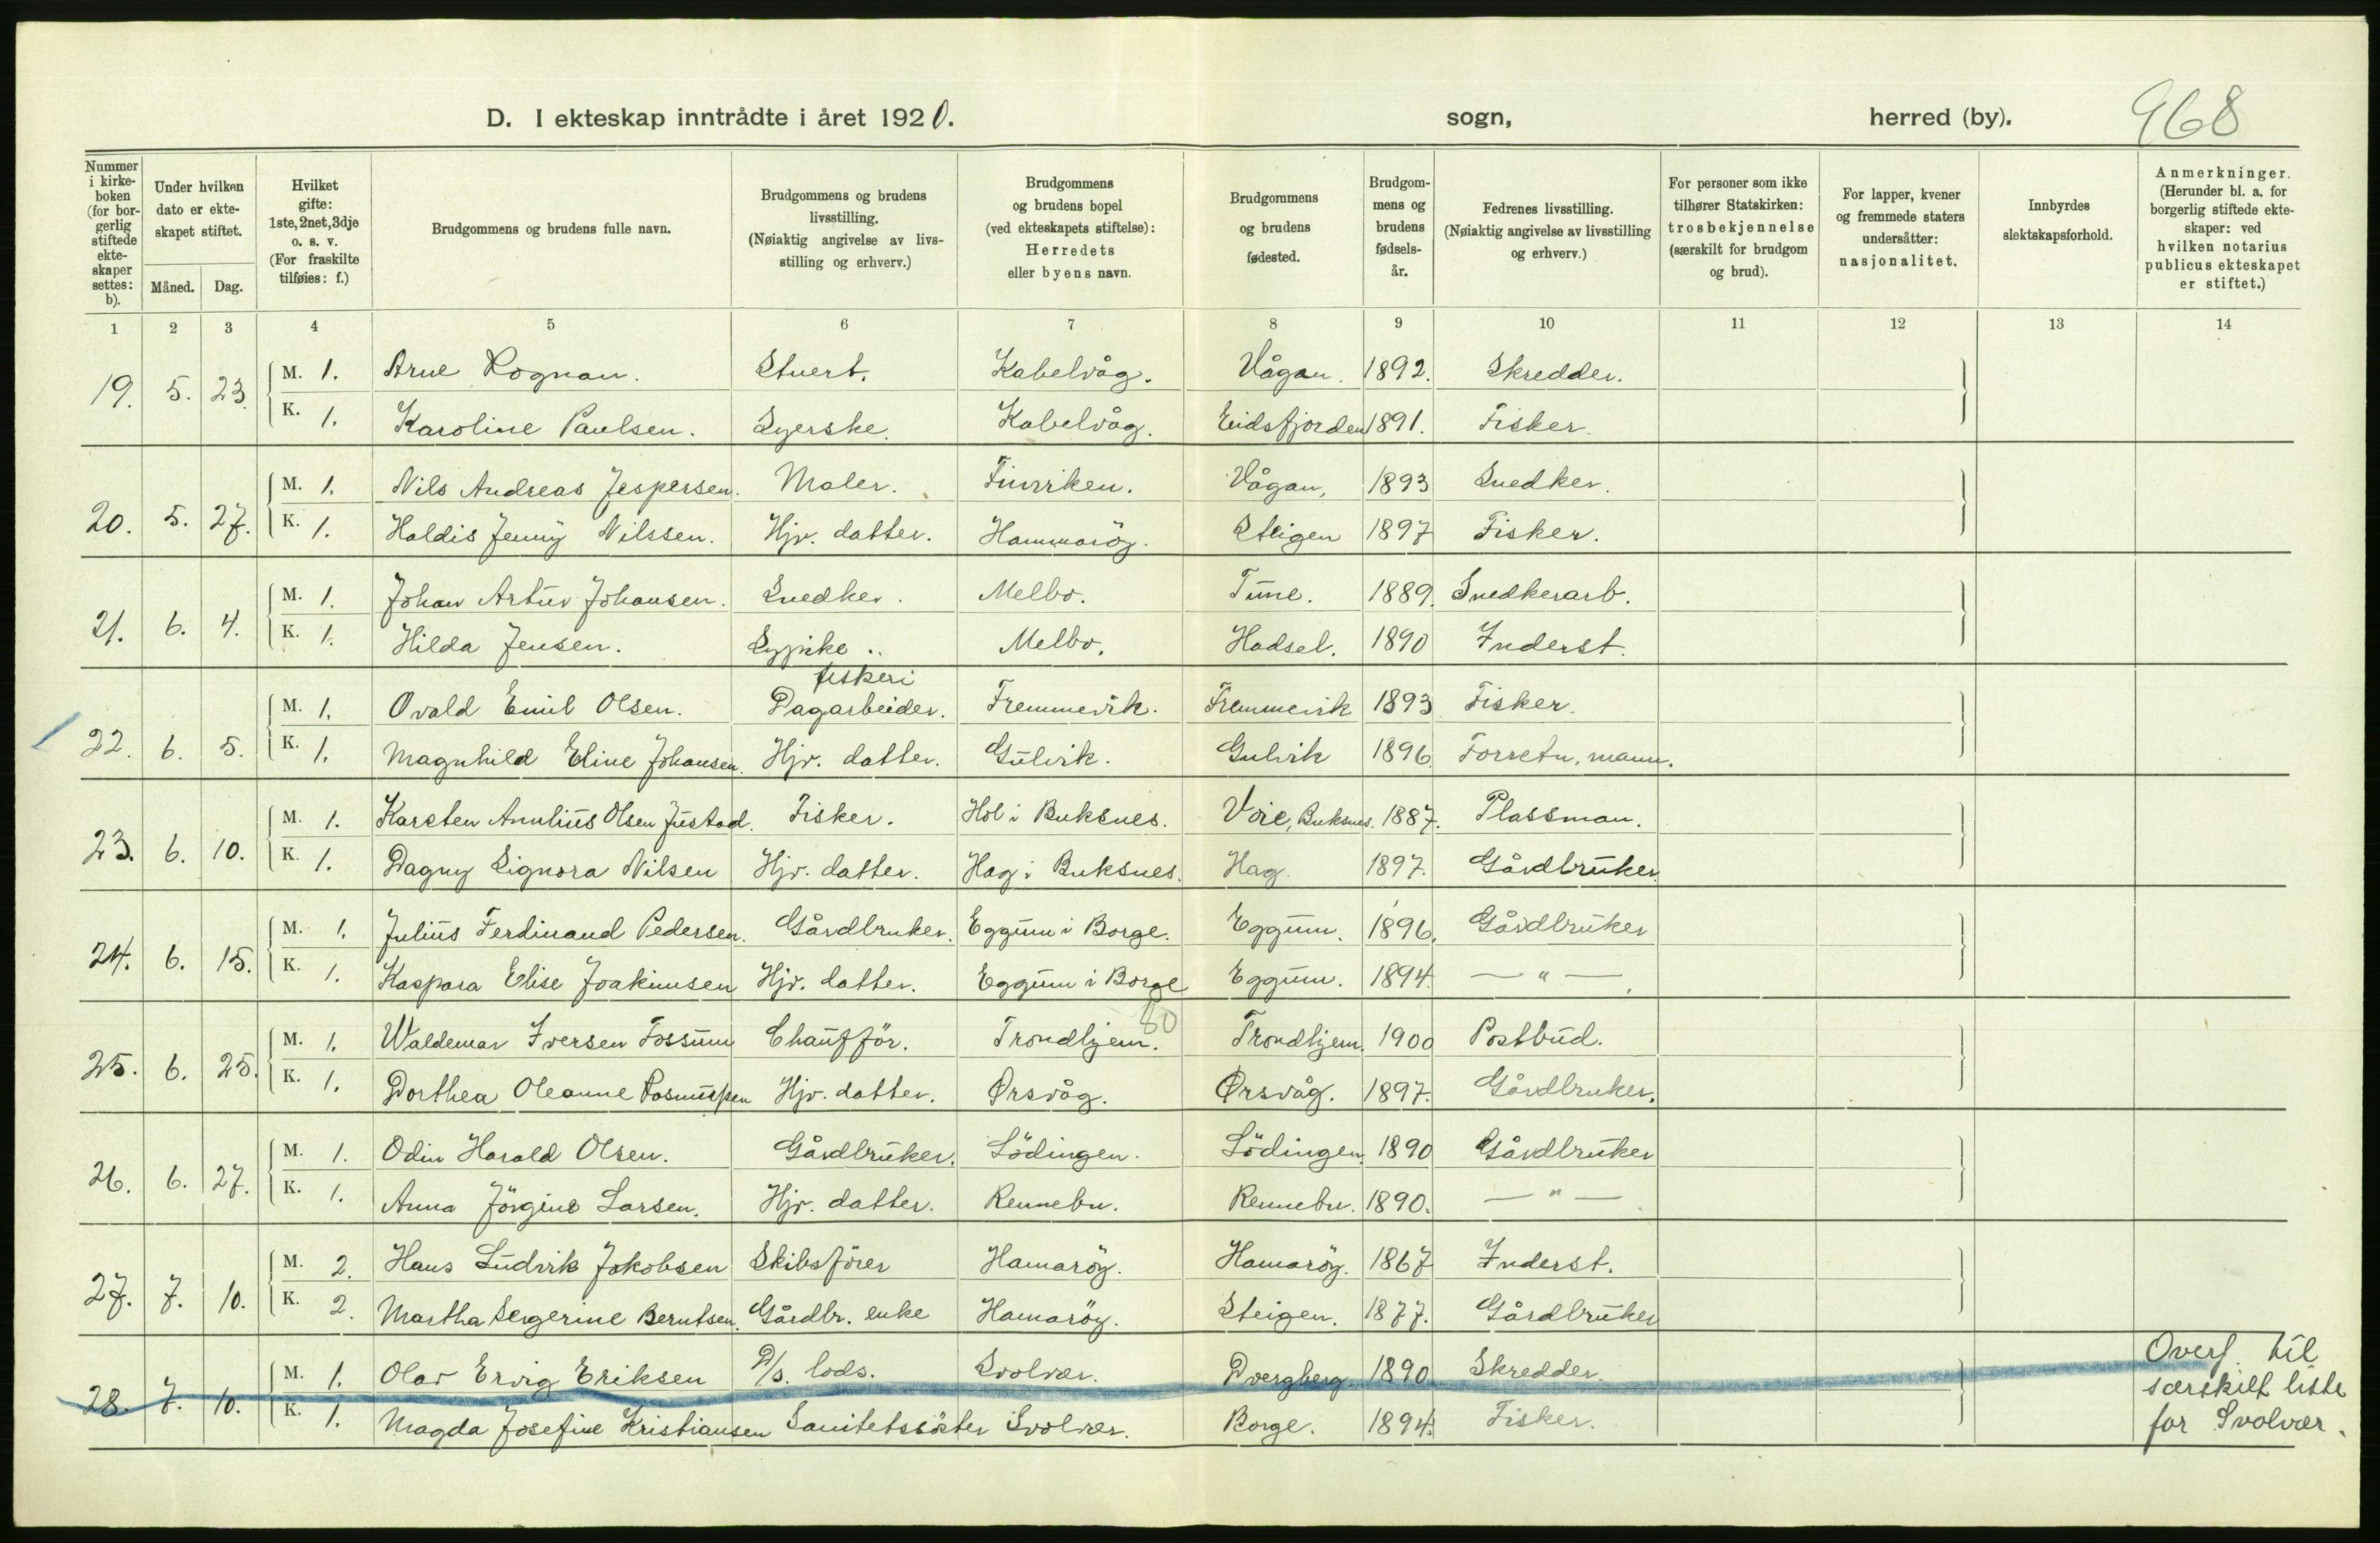 968
D. I ekteskap inntrådte i året 1920. sogn, herred (by).
Nummer i kirke-boken (for bor-gerlig stiftede ekte-skaper settes: b).
Under hvilken dato er ekte-skapet stiftet.
Måned. Dag.
Hvilket gifte: 1ste, 2net, 3dje o. s. v. (For fraskilte tilføies: f.)
Brudgommens og brudens fulle navn.
Brudgommens og brudens livsstilling. (Nøiaktig angivelse av livs-stilling og erhverv.)
Brudgommens og brudens bopel (ved ekteskapets stiftelse): Herredets eller byens navn.
Brudgommens og brudens fødested.
Brudgom-mens og brudens fødsels-år.
Fedrenes livsstilling. (Nøiaktig angivelse av livsstilling og erhverv.)
For personer som ikke tilhører Statskirken: trosbekjennelse (særskilt for brudgom og brud).
For lapper, kvener og fremmede staters undersåtter: nasjonalitet.
Innbyrdes slektskapsforhold.
Anmerkninger. (Herunder bl. a. for borgerlig stiftede ekte-skaper: ved hvilken notarius publicus ekteskapet er stiftet.)
1 2 3 4 5 6 7 8 9 10 11 12 13 14
19. 5. 23. M. 1. Arne Rognan. Stuert. Kabelvåg. Vågan. 1892. Skredder.
K. 1. Karoline Paulsen. Syerske. Kabelvåg. Eidsfjorden 1891. Fisker.
20. 5. 27. M. 1. Nils Andreas Jespersen. Maler. Finviken. Vågan, 1893 Snedker.
K. 1. Haldis Jenny Nilssen. Hjv. datter. Hammaröy. Steigen 1897 Fisker.
21. 6. 4. M. 1. Johan Artur Johansen. Snedker. Melbo. Tune. 1889. Snedkerarb.
K. 1. Hilda Jensen. Sypike. Melbo. Hadsel. 1890 Inderst.
fiskeri
22. 6. 5. M. 1. Ovald Emil Olsen. Dagarbeider. Fremmevik. Fremmevik 1893 Fisker.
K. 1. Magnhild Eline Johansen. Hjv. datter. Gulvik. Gulvik 1896 Forretn. mann.
23. 6. 10. M. 1. Karsten Anulius Olsen Justad. Fisker. Hol i Buksnes. Voie, Buksnes. 1887. Plassman.
K. 1. Dagny Signora Nilsen Hjv. datter. Hag i Buksnes. Hag. 1897. Gårdbruker
24. 6. 15. M. 1. Julius Ferdinand Pedersen. Gårdbruker. Eggum i Borge. Eggum. 1896. Gårdbruker
K. 1. Kaspara Elise Joakimsen Hjv. datter. Eggum i Borge Eggum. 1894. — " —
80
25. 6. 25. M. 1. Waldemar Iversen Fossum Chaufför. Trondhjem. Trondhjem. 1900 Postbud.
K. 1. Dorthea Oleanne Rasmussen Hjv. datter. Ørsvåg. Ørsvåg. 1897. Gårdbruker.
26. 6. 27. M. 1. Odin Harald Olsen. Gårdbruker. Lödingen. Lödingen. 1890 Gårdbruker
K. 1. Anna Jörgine Larsen. Hjv. datter. Rennebu. Rennebu. 1890. — " —
27. 7. 10. M. 2. Hans Ludvik Jakobsen Skibsförer Hamaröy. Hamaröy. 1867 Inderst.
K. 2. Martha Segerine Berntsen. Gårdbr. enke Hamaröy. Steigen. 1877. Gårdbruker
28. 7. 10. M. 1. Olav Ervig Eriksen D/s. lods. Svolvær. Dvergberg. 1890 Skredder. Overf. til
særskilt liste
K. 1. Magda Josefine Kristiansen Sanitetssöster Svolvær. Borge. 1894. Fisker. for Svolvær.